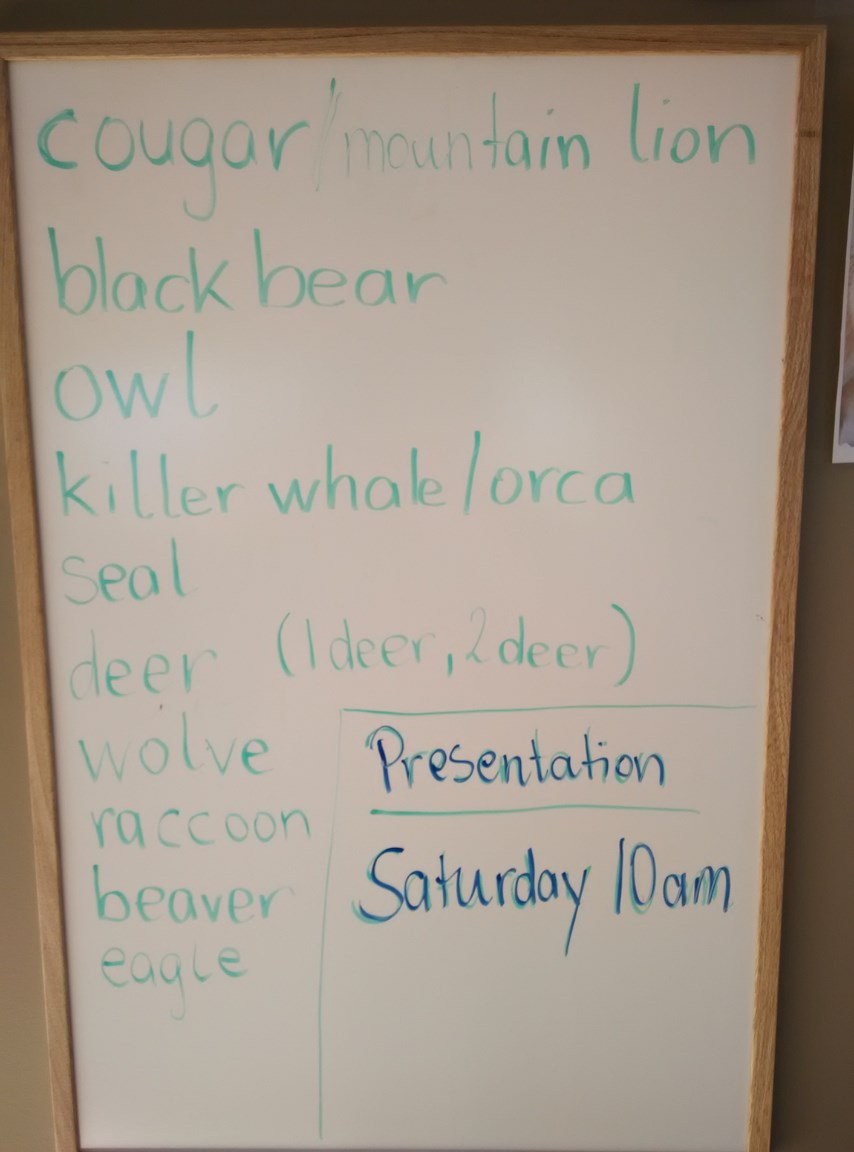 cougar/mountain lion
black bear
owl
killer whale/orca
seal
deer (1 deer, 2 deer)
wolve
raccoon
beaver
eagle
Presentation
Saturday 10am